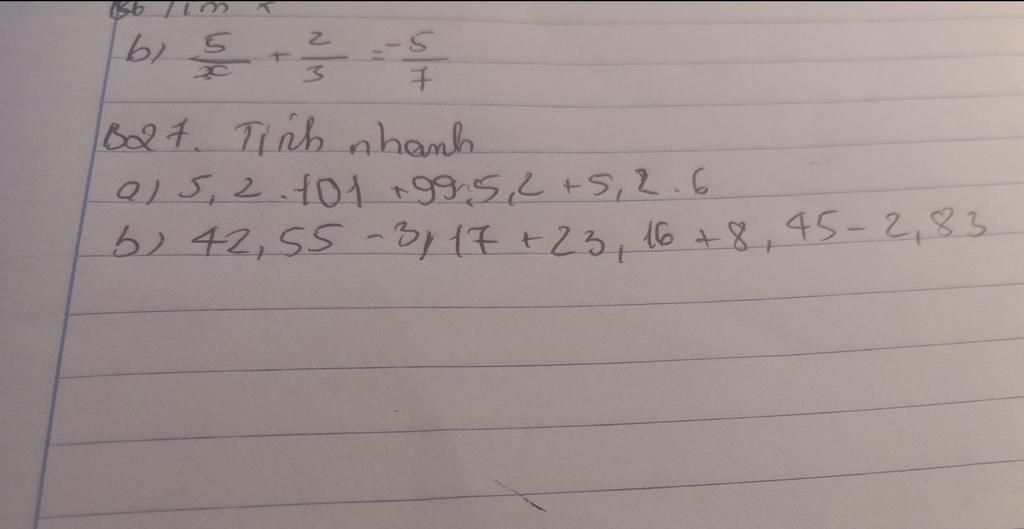 B6 Tìm x
b) 5/x + 2/3 = -5/7
Bà27. Tính nhanh
a) 5,2.101 + 99.5,2 + 5,2.6
b) 42,55 - 3,17 + 23,16 + 8,45 - 2,83